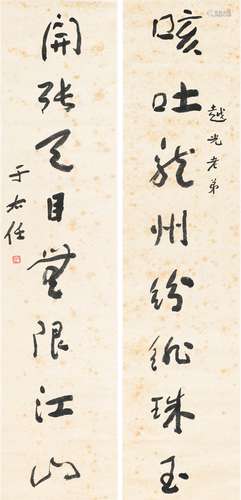 越光老弟
咳吐龍州紛珠玉
開張天目無限江山
于右任